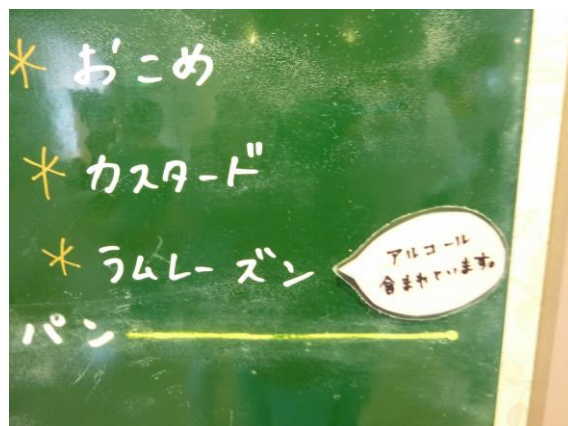 * おこめ
* カスタード
* ラムレーズン
アルコール
含まれています。
パン